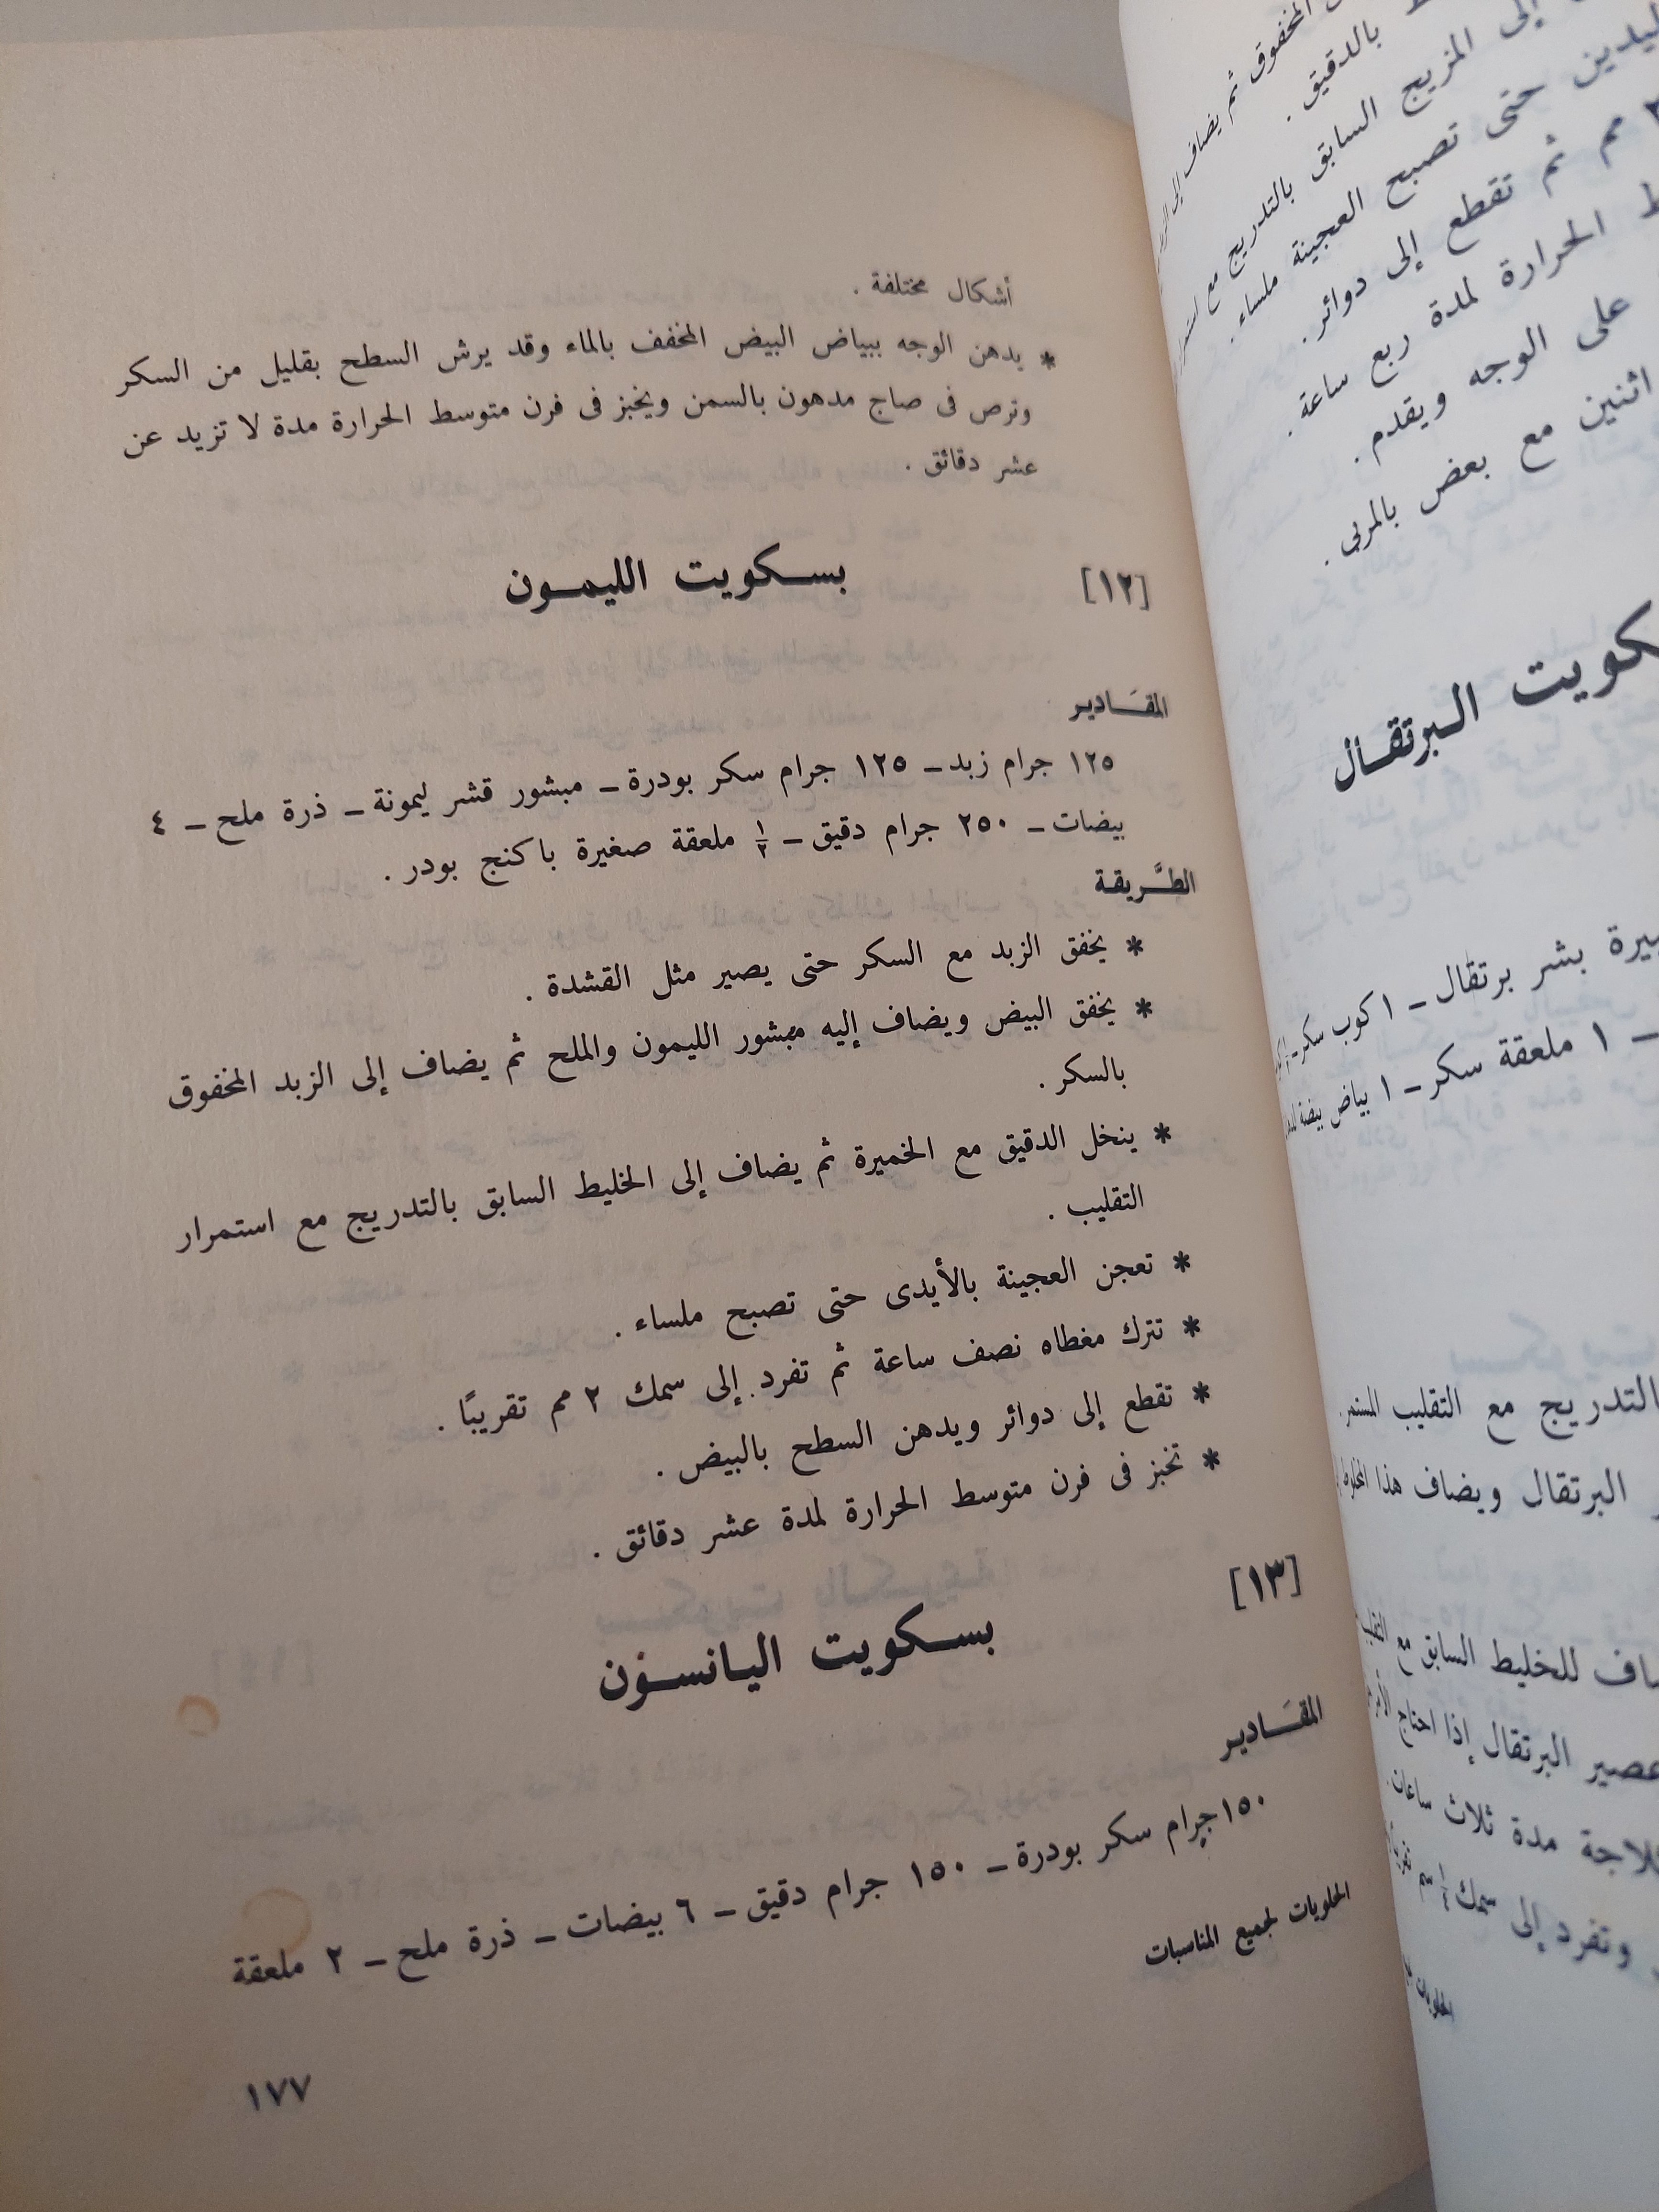 أشكال مختلفة .
* يدهن الوجه ببياض البيض المخفف بالماء وقد يرش السطح بقليل من السكر
وترص فى صاج مدهون بالسمن ويخبز فى فرن متوسط الحرارة مدة لا تزيد عن
عشر دقائق .
[١٢]
بسكويت الليمون
المقَادير
١٢٥ جرام زبد – ١٢٥ جرام سكر بودرة – مبشور قشر ليمونة – ذرة ملح – ٤
بيضات – ٢٥٠ جرام دقيق – ١/٢ ملعقة صغيرة باكنج بودر .
الطَّريقة
* يخفق الزبد مع السكر حتى يصير مثل القشدة .
* يخفق البيض ويضاف إليه مبشور الليمون والملح ثم يضاف إلى الزبد المخفوق
بالسكر .
* ينخل الدقيق مع الخميرة ثم يضاف إلى الخليط السابق بالتدريج مع استمرار
التقليب .
* تعجن العجينة بالأيدى حتى تصبح ملساء .
* تترك مغطاه نصف ساعة ثم تفرد إلى سمك ٢ مم تقريبًا .
* تقطع إلى دوائر ويدهن السطح بالبيض .
* تخبز فى فرن متوسط الحرارة لمدة عشر دقائق .
[١٣]
بسكويت اليانسون
المقَادير
١٥٠ جرام سكر بودرة – ١٥٠ جرام دقيق – ٦ بيضات – ذرة ملح – ٢ ملعقة
الحلويات لجميع المناسبات
١٧٧
المخفوق ثم يضاف
بالدقيق .
إلى المزيج السابق بالتدريج مع
حتى تصبح العجينة ملساء .
مم ثم تقطع إلى دوائر .
الحرارة لمدة ربع ساعة .
على الوجه ويقدم .
اثنين مع بعض بالمربى .
البرتقال
بشر برتقال – ١ كوب سكر
– ١ ملعقة سكر – ١ بياض بيضة
بالتدريج مع التقليب المستمر .
البرتقال ويضاف هذا
للخليط السابق مع
عصير البرتقال إذا احتاج
مدة ثلاث ساعات .
وتفرد إلى سمك